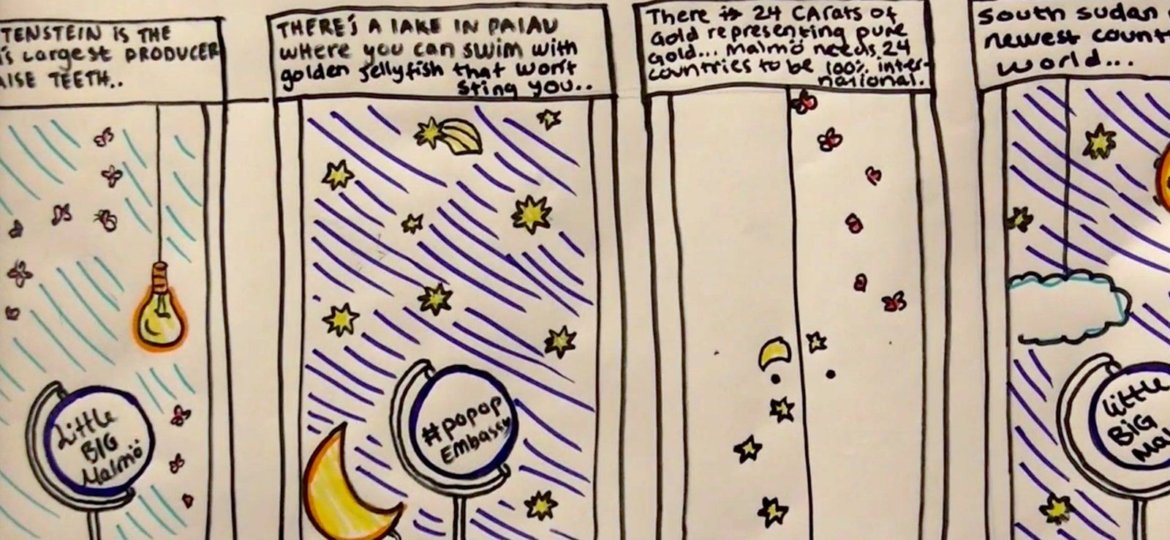 TENSTEIN IS THE
'S Largest PRODUCER
ALSE TEETH..
THERE'S A LAKE IN PALAU
WHERE you can swim with
golden Jellyfish that won't
sting you..
There is 24 CArats of
Gold representing pure
Gold... Malmö needs 24
countries to be 100% inter-
national.
South Sudan
newest count
world...
Little
BIG
Malmö
#popop
Embassy
Little
BiG
Ma